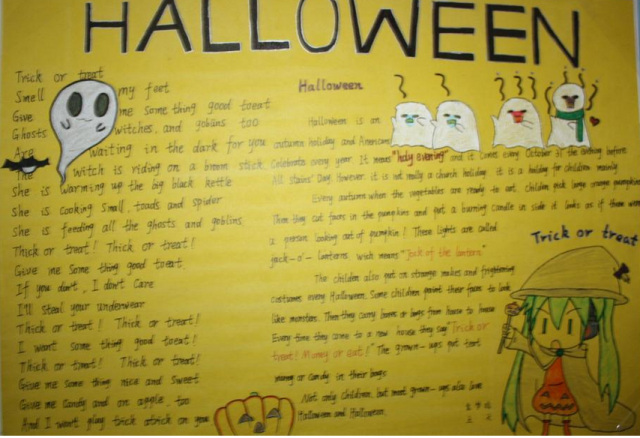 HALLOWEEN
Trick or treat
Smell my feet
Give me some thing good toeat
Ghosts witches, and goblins too
Are waiting in the dark for you
The witch is riding on a brown stick
She is warming up the big black kettle
She is cooking small, toads and spider
She is feeding all the ghosts and goblins
Thick or treat! Thick or treat!
Give me some thing good toeat
If you don't, I don't Care
I'll steal your underwear
Thick or treat! Thick or treat!
I want some thing good toeat!
Thick or treat! Thick or treat!
Give me some thing nice and sweet
Give me Candy and an apple, too
And I won't play trick on you
Halloween
Halloween is an
autumn holiday and Americans
Celebrate every year. It means "holy evening" and it comes every October 31 the evening before
All Saints' Day. However, it is not really a church holiday, it is a holiday for children mainly
Every autumn when the vegetables are ready to eat, children pick large orange pumpkins
Then they cut faces in the pumpkins and put a burning candle in side it looks as if there were
a person looking out of pumpkin! These lights are called
jack-o'-lanterns, wich means "Jack of the lantern"
The children also put on strange masks and frightening
costumes every Halloween. Some children paint their faces to look
like monsters. Then they carry boxes or bags from house to house
Every time they come to a new house they say "Trick or
treat! Money or eat!" The grown-ups put
money or candy in their bags
Not only children, but most grown-ups also love
Halloween and Halloween
Trick or treat